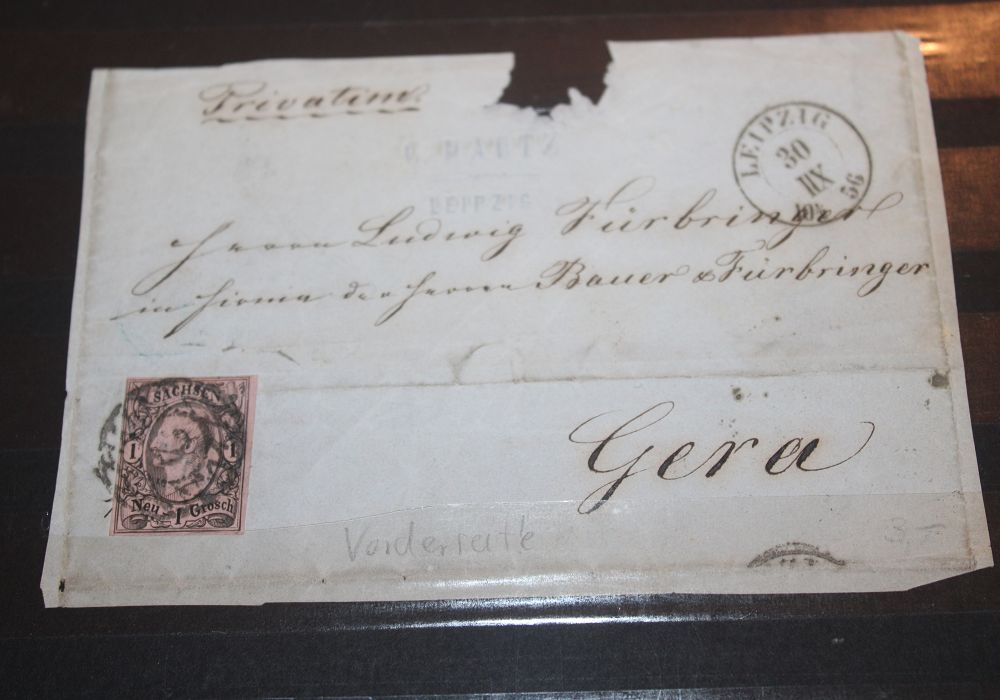 Privatim
LEIPZIG
30
XII
56
LEIPZIG
Herrn Ludwig Fürbringer
in Firma der Herren Bauer & Fürbringer
SACHSEN
1 1
Neu 1 Grosch
Gera
Vorderseite
3,-